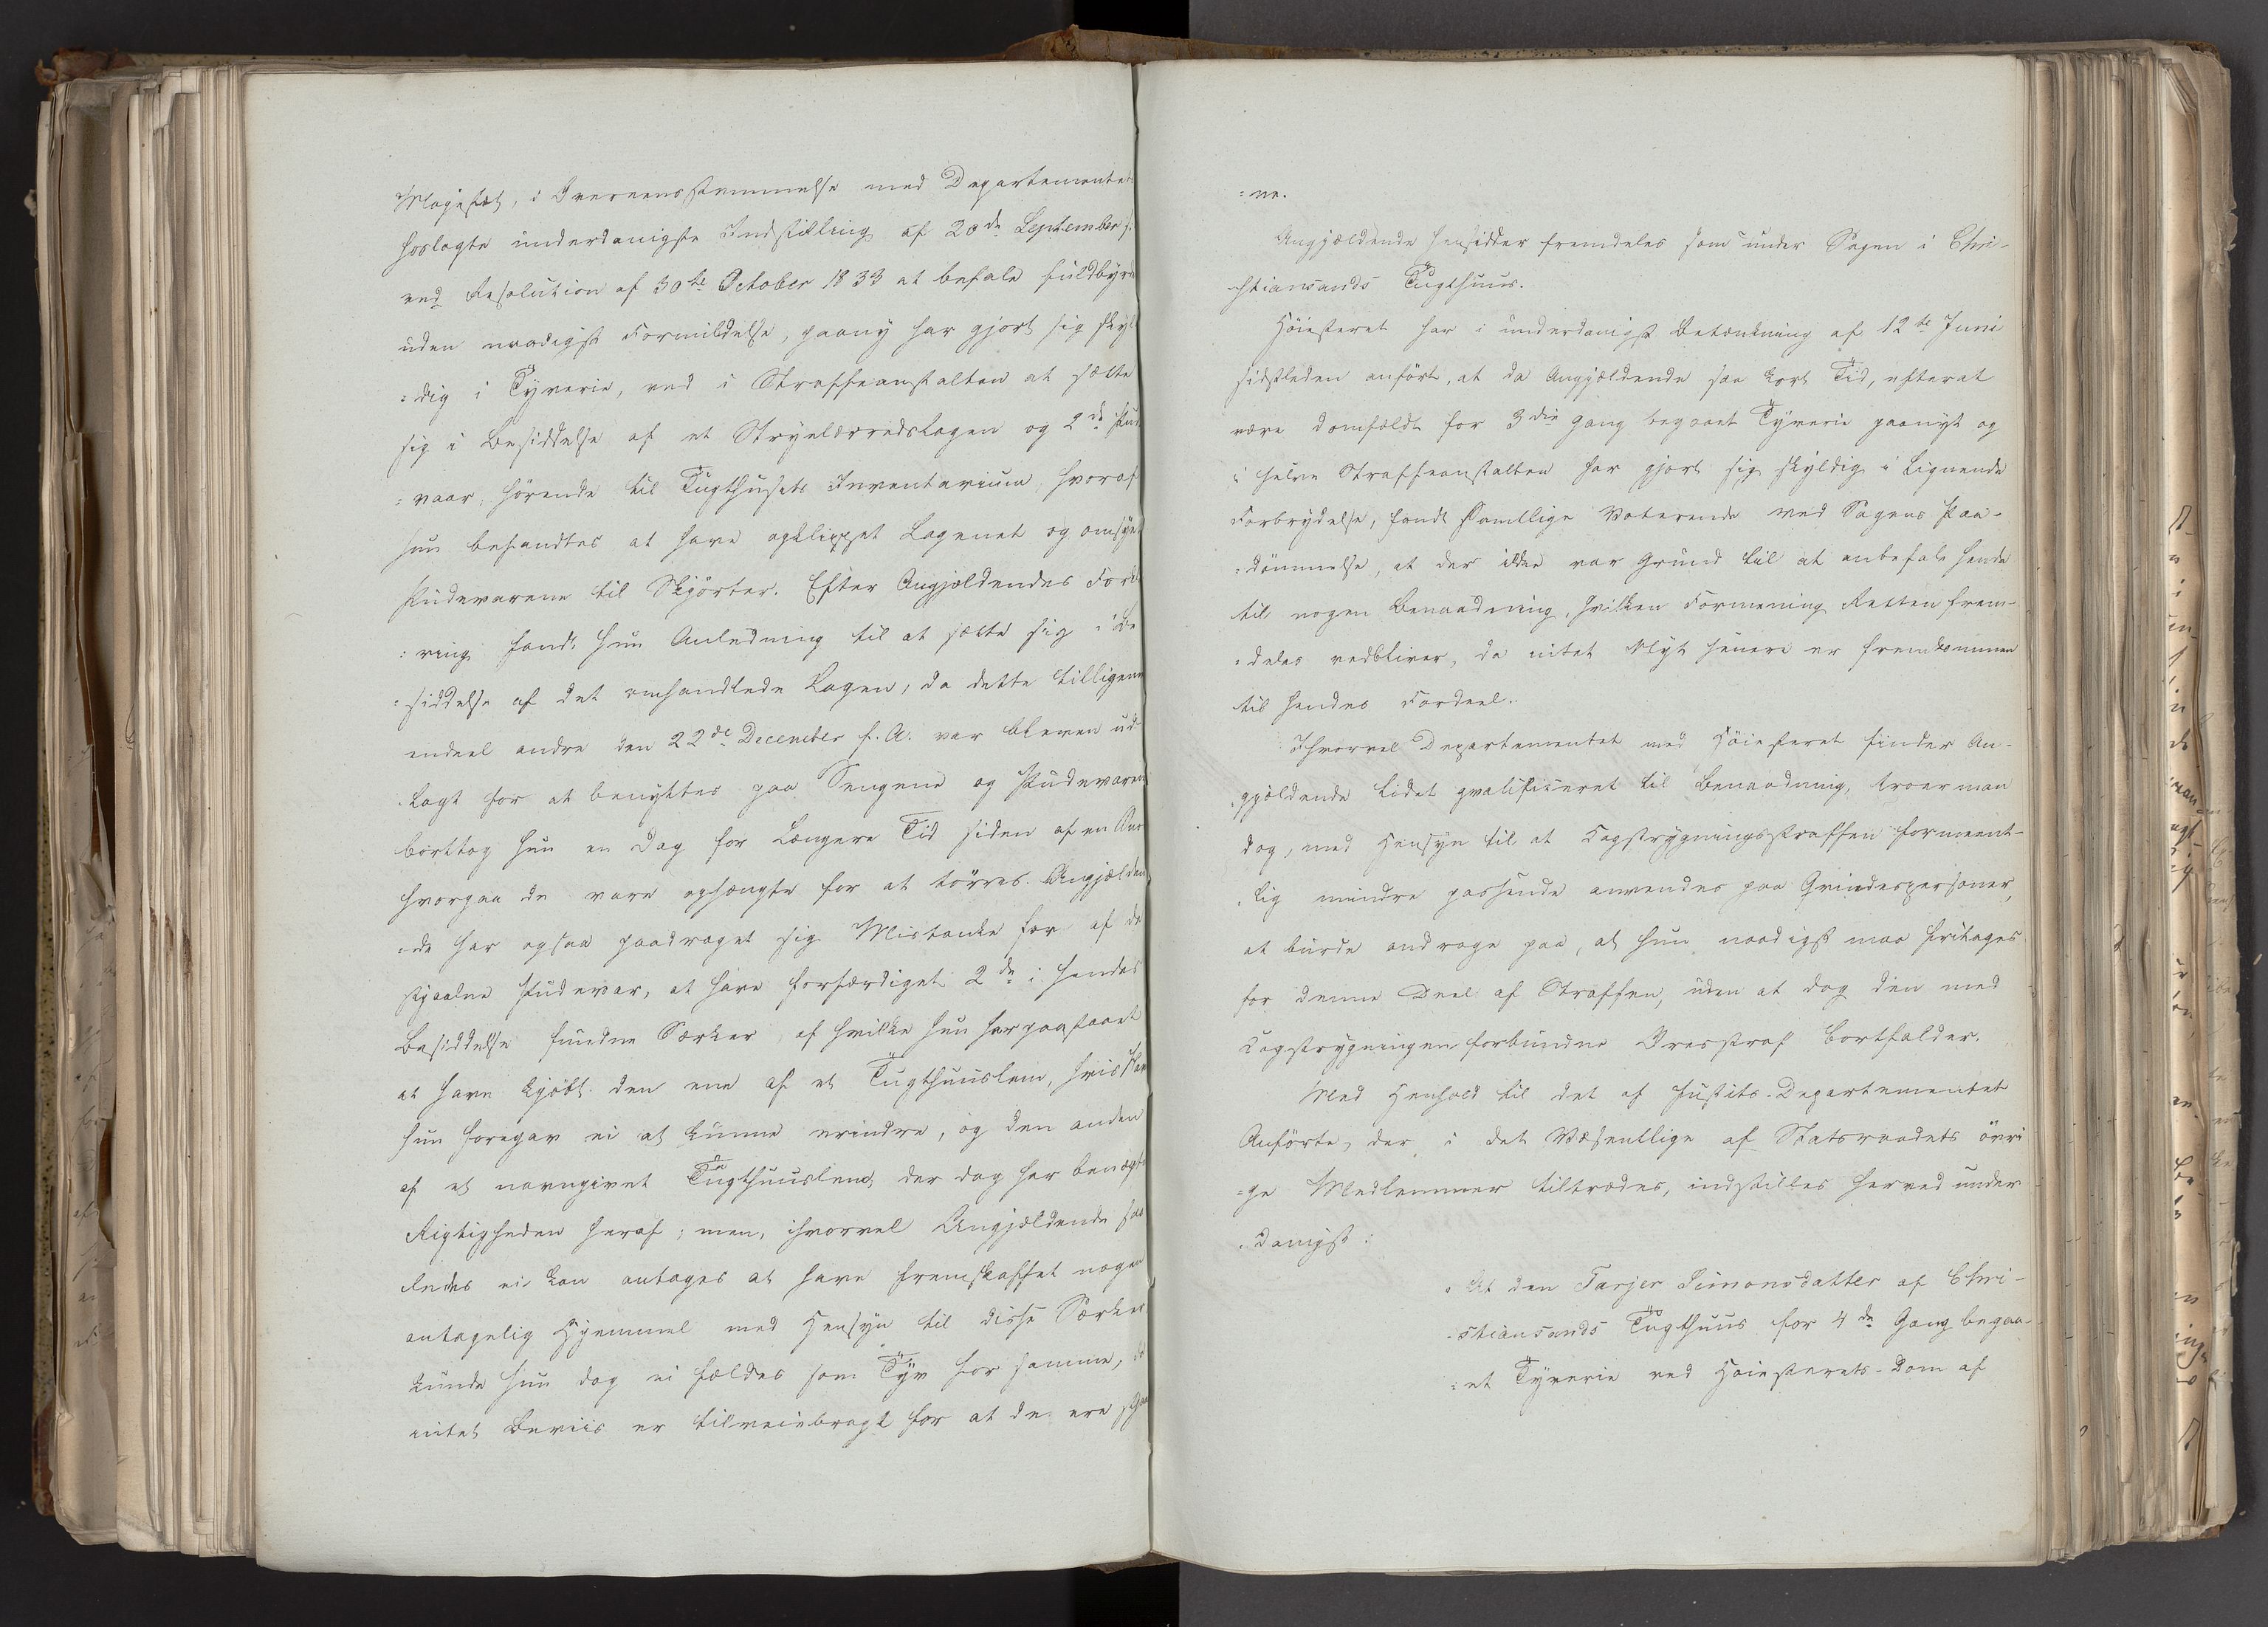 Majestæt, i Overeensstemmelse med Departementets
hoslagte underdanigste Indstilling af 20de September s.
ved Resolution af 30te October 1833 at befale fuldbyrdet
uden naadigst Formildelse, paany har gjort sig skyl
=dig i Tyverie, ved i Straffeanstalten at sætte
sig i Besiddelse af et Strylærredslagen og 2de Pude
=vaar, hørende til Tugthusets Inventarium, hvoraf
hun befandtes at have opklippet Lagenet og omsyet
Pudevarene til Skjørter. Efter Angjældendes Forkla
=ring fandt hun Anledning til at sætte sig i Be
=siddelse af det omhandlede Lagen, da dette tilligemed
endeel andre den 22de December f. A. var bleven ud
=lagt for at benyttes paa Sengene og Pudevarene
borttog hun en Dag for længere Tid siden af en
hvorpaa de vare ophængte for at tørres. Angjælden
=de har ogsaa paadraget sig Mistanke for af de
stjaalne Pudevar, at have forfærdiget 2de i hendes
Besiddelse fundne Særker, af hvilke hun har paastaaet
at have kjøbt den ene af et Tugthuuslem, hvis Navn
hun foregav ei at kunne erindre, og den anden
af et navngivet Tugthuuslem, der dog har benægtet
Rigtigheden heraf; men, ihvorvel Angjældende saa
ledes ei kan antages at have fremskaffet nogen
antagelig Hjemmel med Hensyn til disse Særker
kunde hun dog ei fældes som Tyv for samme, da
intet Beviis er tilveiebragt for at de ere stjaal
=ne.
Angjældende hensidder fremdeles som under Sagen i Chri-
stiansands Tugthuus.
Høiesteret har i underdanigst Betænkning af 12te Juni
sidstleden anført, at da Angjældende saa kort Tid, efterat
være domfældt for 3die Gang begaaet Tyverie paanyt og
i selve Straffeanstalten har gjort sig skyldig i lignende
Forbrydelse, fandt samtlige Voterende ved Sagens Paa-
=dømmelse, at der ikke var Grund til at anbefale hende
til nogen Benaadning, hvilken Formening Retten frem-
=deles vedbliver, da intet Nyt senere er fremkommen
til hendes Fordeel.
Ihvorvel Departementet med Høiesteret finder An-
gjældende lidet qvalificeret til Benaadning, troer man
dog, med Hensyn til at Kagstrygningsstraffen formeent-
lig mindre passende anvendes paa Qvindespersoner,
at burde andrage paa, at hun naadigst maa fritages
for denne Deel af Straffen, uden at dog den med
Kagstrygningen forbundne Æresstraf bortfalder.
Med Henhold til det af Justits-Departementet
Anførte, der i det Væsentlige af Statsraadets øvri
=ge Medlemmer tiltrædes, indstilles herved under
danigst:
At den Tarjer Simonsdatter af Chri-
-stiansands Tugthuus for 4de Gang begaa-
=et Tyverie ved Høiesterets-Dom af